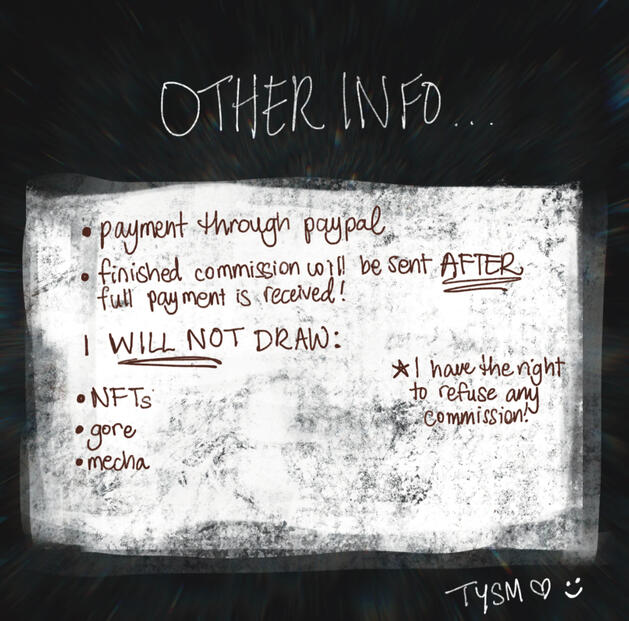 OTHER INFO...
• payment through paypal
• finished commission will be sent AFTER
full payment is received!
I WILL NOT DRAW:
• NFTs
• gore
• mecha
★ I have the right
to refuse any
commission!
TYSM ♡ :)